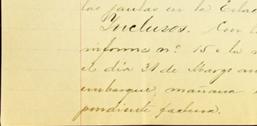 las jaulas en la Estac
Inclusos. Con l
informe nº. 15 e la
el día 31 de Marzo an
embarque, mañana
pondiente factura.